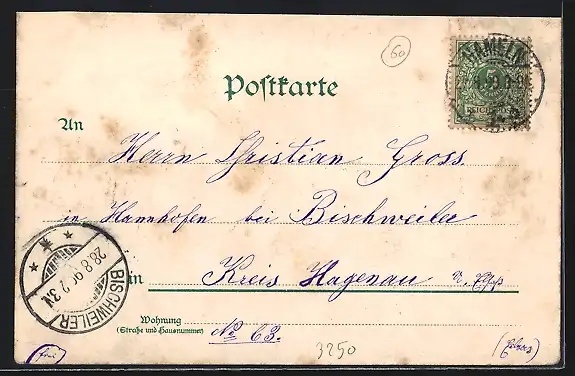 60
HAMELN
Postkarte
REICHSPOST
An
Herrn Christian Gross
in Hannhofen bei Bischweiler
in Kreis Hagenau
BISCHWEILER
28.8.9
2-3N
Wohnung
(Straße und Hausnummer)
No 63.
3250
(Elsass)